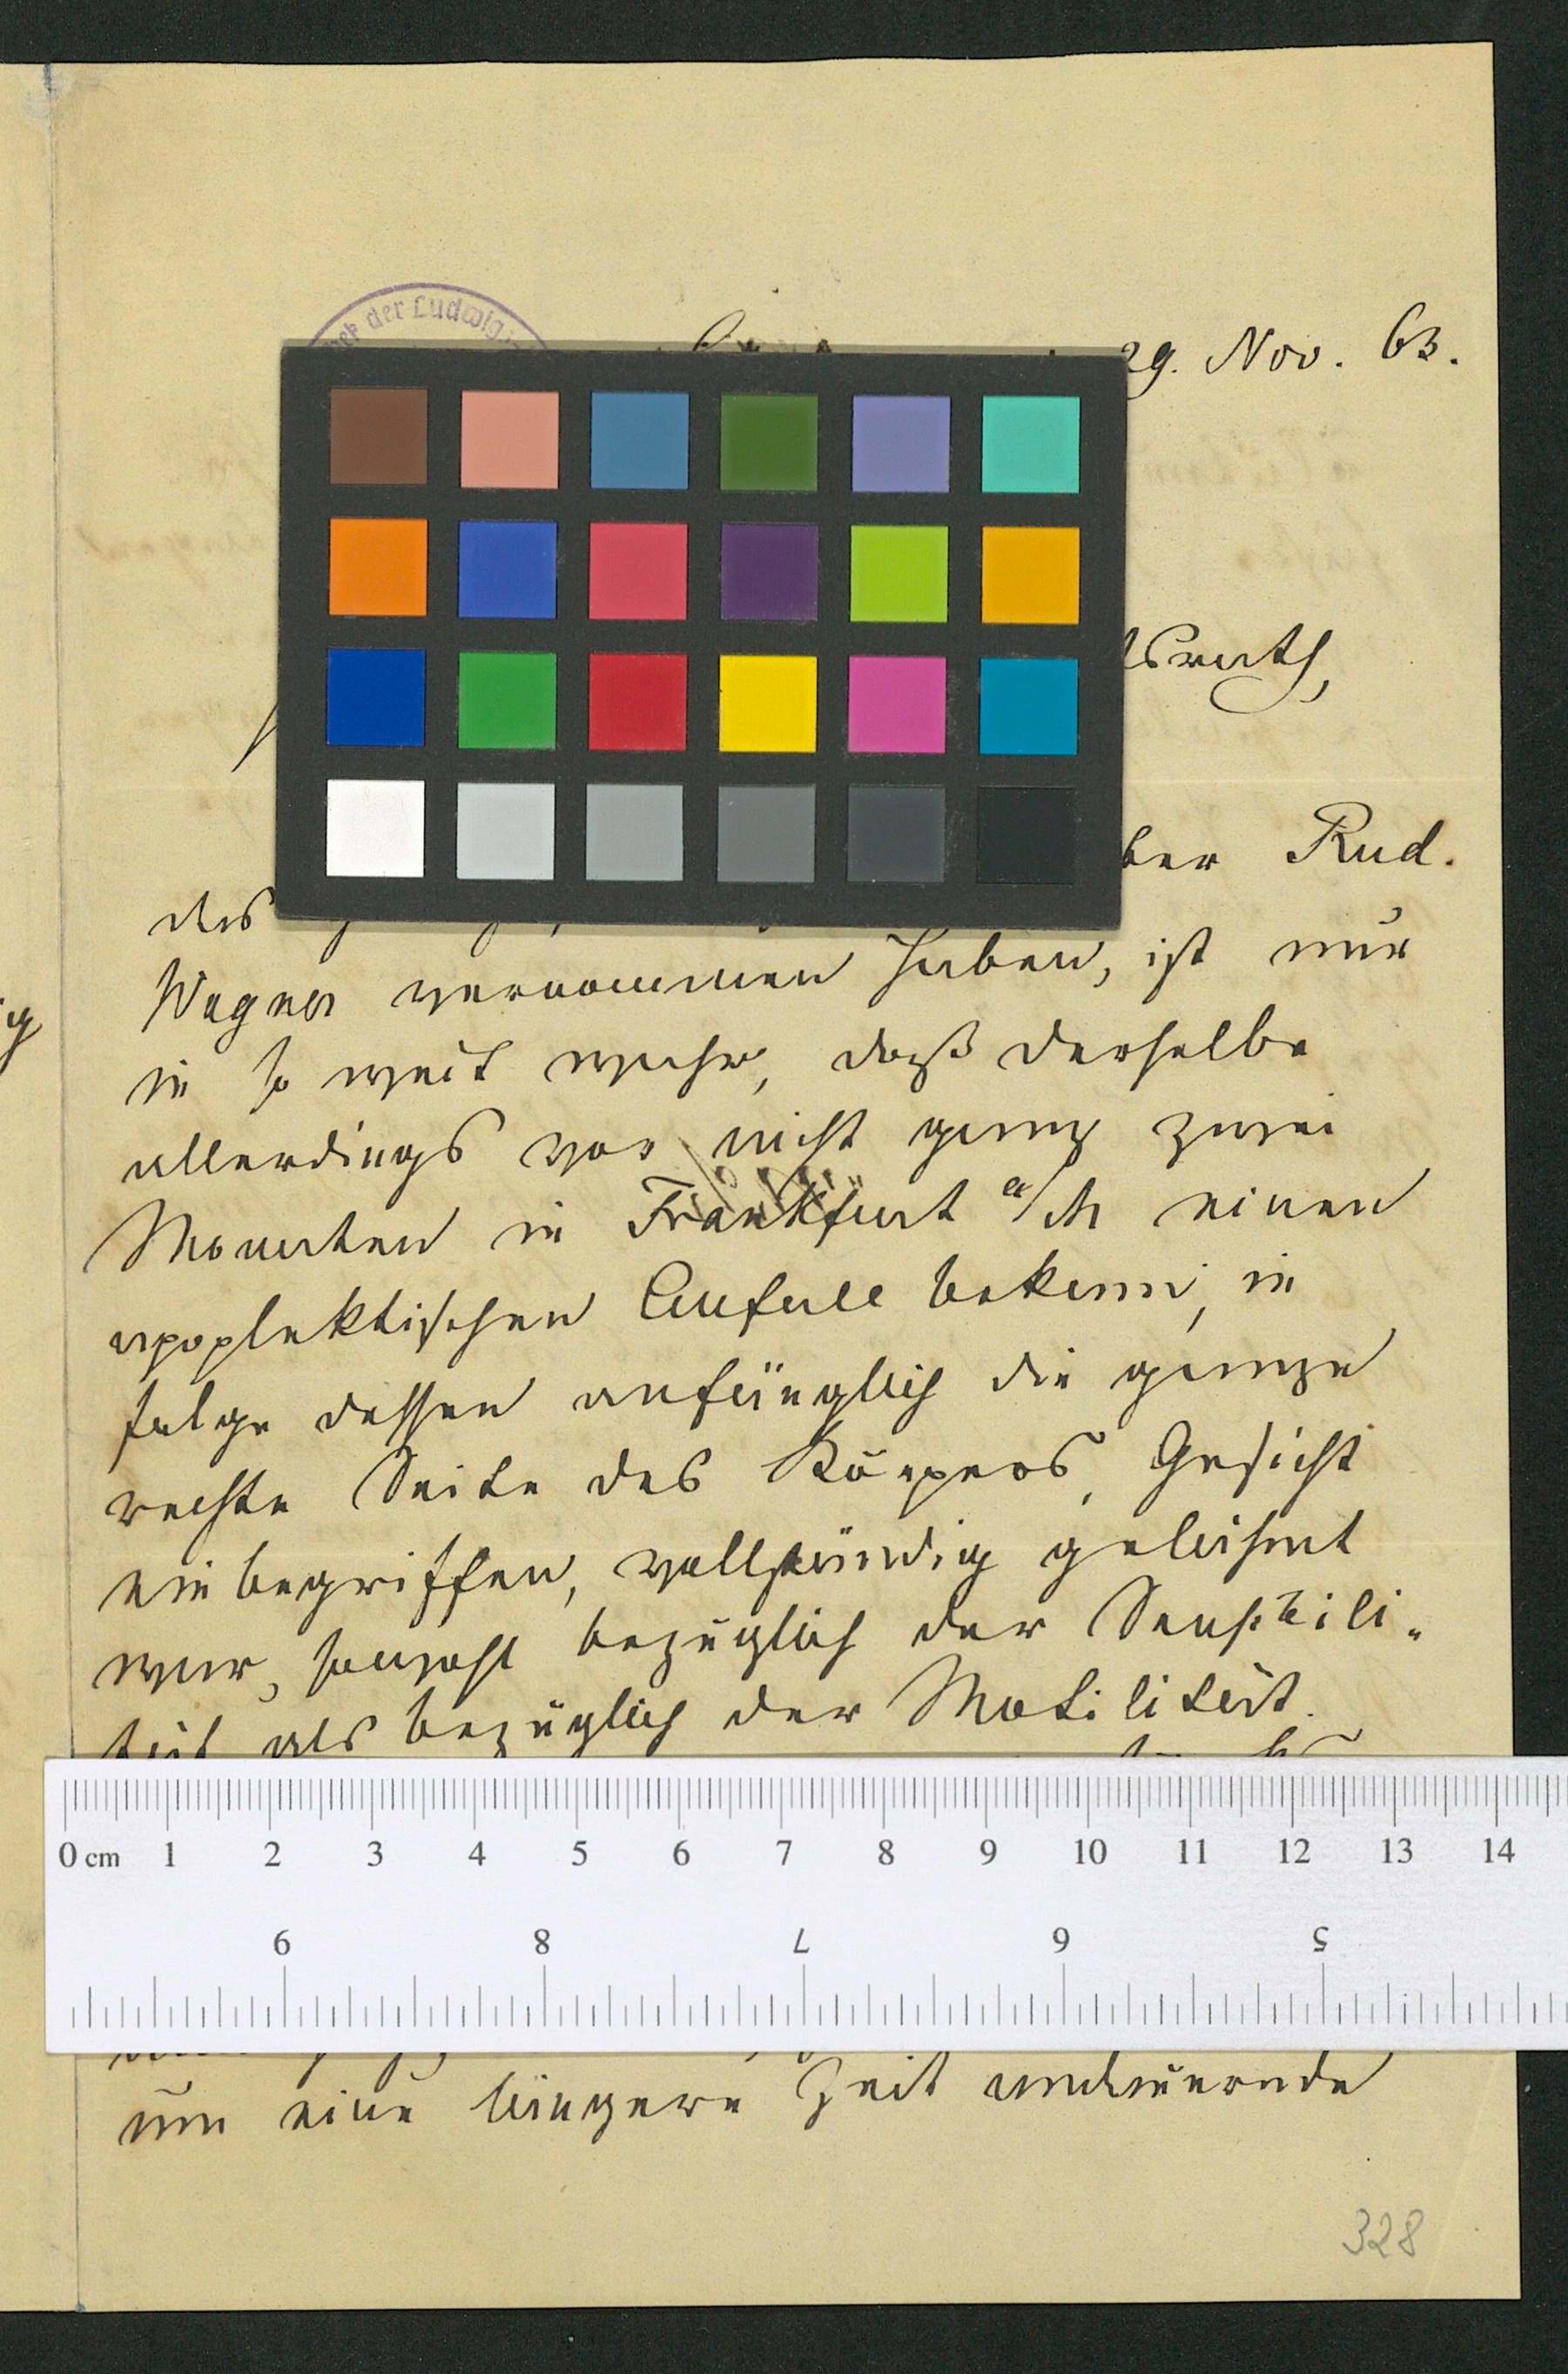 ek der Ludwig
29. Nov. 63.
tsrath,
ber Rud.
das
Wagner vernommen haben, ist nur
in so weit wahr, daß derselbe
allerdings vor nicht ganz zwei
Monaten in Frankfurt a/M einen
apoplektischen Anfall bekam, in
folge dessen anfänglich die ganze
rechte Seite des Körpers, Gesicht
einbegriffen, vollständig gelähmt
war, sowohl bezüglich der Sensibili-
tät als bezüglich der Motilität.
0 cm 1 2 3 4 5 6 7 8 9 10 11 12 13 14
9 8 7 6 5
um eine längere Zeit andauernde
328